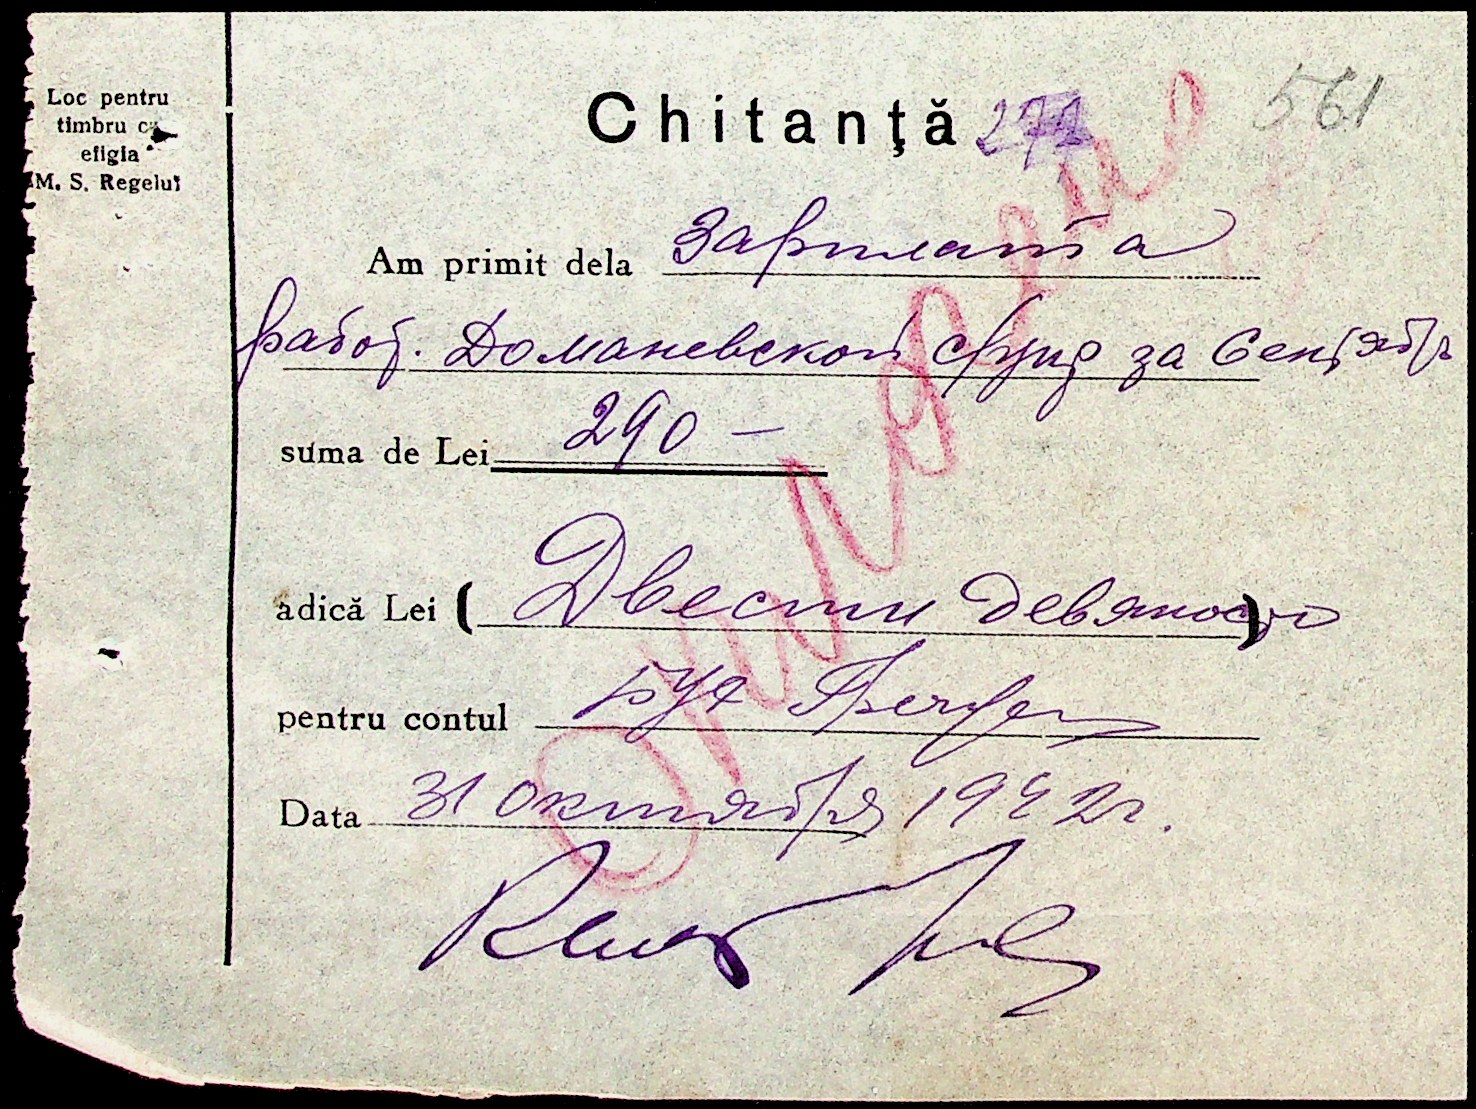 Loc pentru
timbru cu
efigia
M. S. Regelui
Chitanţă 277
561
Am primit dela зарплата
работ. Доманевской за Сентябрь
suma de Lei 290 —
adică Lei ( Двести девяносто )
pentru contul бух
Data 31 октября 1942 г.
Оплачено